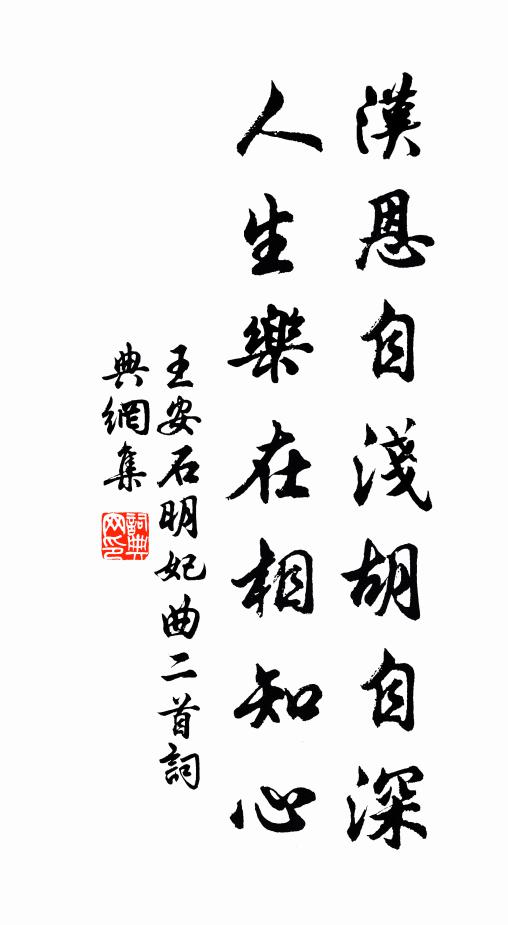 漢恩自淺胡自深
人生樂在相知心
王安石明妃曲二首詞
典網集
詞典
网印